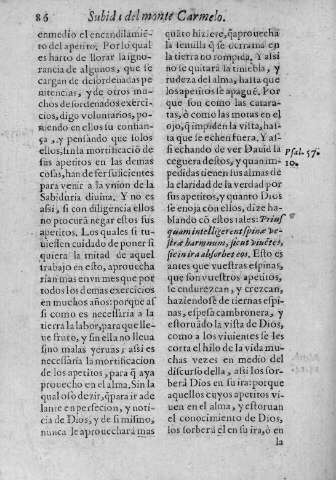 86 Subida del monte Carmelo.
enmedio el encandilamiẽ-
to del apetito, Por lo qual
es harto de llorar la igno-
rancia de algunos, que se
cargan de desordenadas pe-
nitencias, y de otros mu-
chos desordenados exerci-
cios, digo voluntarios, po-
niendo en ellos su confian-
ça, y pensando que solos
ellos, sin la mortificaciõ de
sus apetitos en las demas
cosas, han de ser suficientes
para venir a la vniõn de la
Sabiduria diuina. Y no es
assi, si con diligencia ellos
no procurã negar estos sus
apetitos. Los quales si tu-
uiessen cuidado de poner si
quiera la mitad de aquel
trabajo en esto, aprouecha
rian mas en vn mes que por
todos los demas exercicios
en muchos años: porque as
si como es necessaria a la
tierra la labor, para que lle-
ue fruto, y sin ella no lleua
sino malas yeruas; assi es
necessaria la mortificacion
de los apetitos, para q̃ aya
prouecho en el alma, Sin la
qual oso dezir, q̃ para ir ade
lante en perfecion, y noti-
cia de Dios, y de si mismo,
nunca le aprouecharà mas
quãto hiziere, q̃ aprouecha
la semilla q̃ se derrama en
la tierra no rompida. Y assi
no se quitarà la tiniebla, y
rudeza del alma, hasta que
los apetitos se apaguẽ. Por
que son como las catara-
tas, ò como las motas en el
ojo, q̃ impiden la vista, has-
ta que se echen fuera. Y as-
si echando de ver Dauid la
ceguera destos, y quan im-
pedidas tienen sus almas de
la claridad de la verdad por
sus apetitos, y quanto Dios
se enoja con ellos, dize ha-
blando cõ estos tales: Prius
quam intelligerent spinæ ve-
stræ rhamnum, sicut viuẽtes,
sic in ira absorbet eos. Esto es
antes que vuestras espinas,
que son vuestros apetitos,
se endurezcan, y crezcan,
haziendose de tiernas espi-
nas, espesa cambronera, y
estoruãdo la vista de Dios,
como a los viuientes se les
corta el hilo de la vida mu-
chas vezes en medio del
discurso della, assi los sor-
berà Dios en su ira: porque
aquellos cuyos apetitos vi-
uen en el alma, y estoruan
el conocimiento de Dios,
los sorberà èl en su ira, ò en
la
Psal. 57.
10.